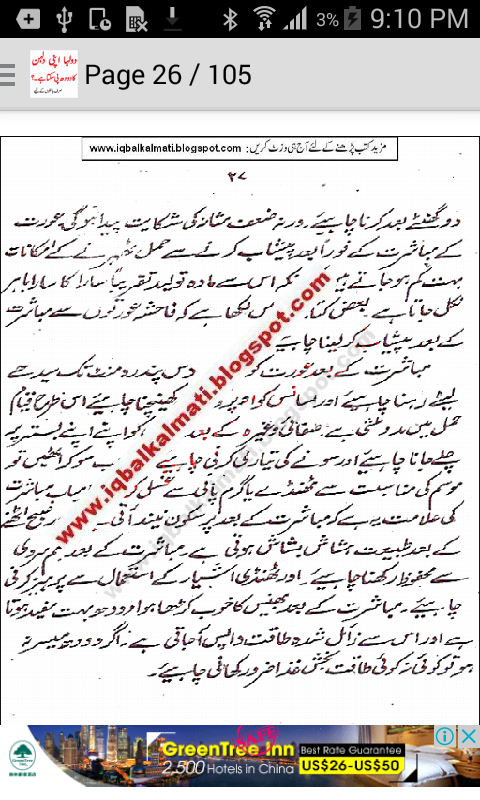 3% 9:10 PM
دولہا اپنی دلہن
کا دودھ پی سکتا ہے۔؟
Page 26 / 105
مزید کتب پڑھنے کے لئے آج ہی وزٹ کریں: www.iqbalkalmati.blogspot.com
۲۷
دو گھنٹے بعد کرنا چاہیئے۔ ورنہ ضعف مثانہ کی شکایت پیدا ہوگی۔ عورت
کے مباشرت کے فوراً بعد پیشاب کرنے سے حمل ٹھہرنے کے امکانات
بہت کم ہو جاتے ہیں کہ اس سے مادہ تولید تقریباً سارا کا سارا باہر
نکل جاتا ہے۔ بعض میں لکھا ہے کہ فاحشہ عورتوں سے مباشرت
کے بعد پیشاب کر لینا چاہیے
مباشرت کے بعد عورت کو دس پندرہ منٹ تک سیدھے
لیٹے رہنا چاہیے اور سانس کو اوپر کھینچنا چاہیے اس طرح قیام
حمل میں مدد ملتی ہے۔ صفائی وغیرہ کے بعد کو اپنے اپنے بستر پر
چلے جانا چاہیے اور سونے کی تیاری کرنی چاہیے سو کر اٹھیں تو
موسم کی مناسبت سے ٹھنڈے یا گرم پانی سے غسل مباشرت
کی علامت یہ ہے کہ مباشرت کے بعد پرسکون نیند آتی صبح اٹھنے
کے بعد طبیعت ہشاش بشاش ہوتی ہے۔ مباشرت کے بعد جسم سردی
سے محفوظ رکھنا چاہیے۔ اور ٹھنڈی اشیاء کے استعمال سے پرہیز کرنی
چاہیئے۔ مباشرت کے بعد بھینس کا خوب کڑھا ہوا دودھ بہت مفید ہوتا
ہے اور اس سے زائل شدہ طاقت واپس آجاتی ہے۔ اگر دودھ میسر نہ
ہو تو کوئی نہ کوئی طاقت بخش غذا ضرور کھانی چاہیئے۔
www.iqbalkalmati.blogspot.com
GreenTree Inn
2,500 Hotels in China
Best Rate Guarantee
US$26-US$50